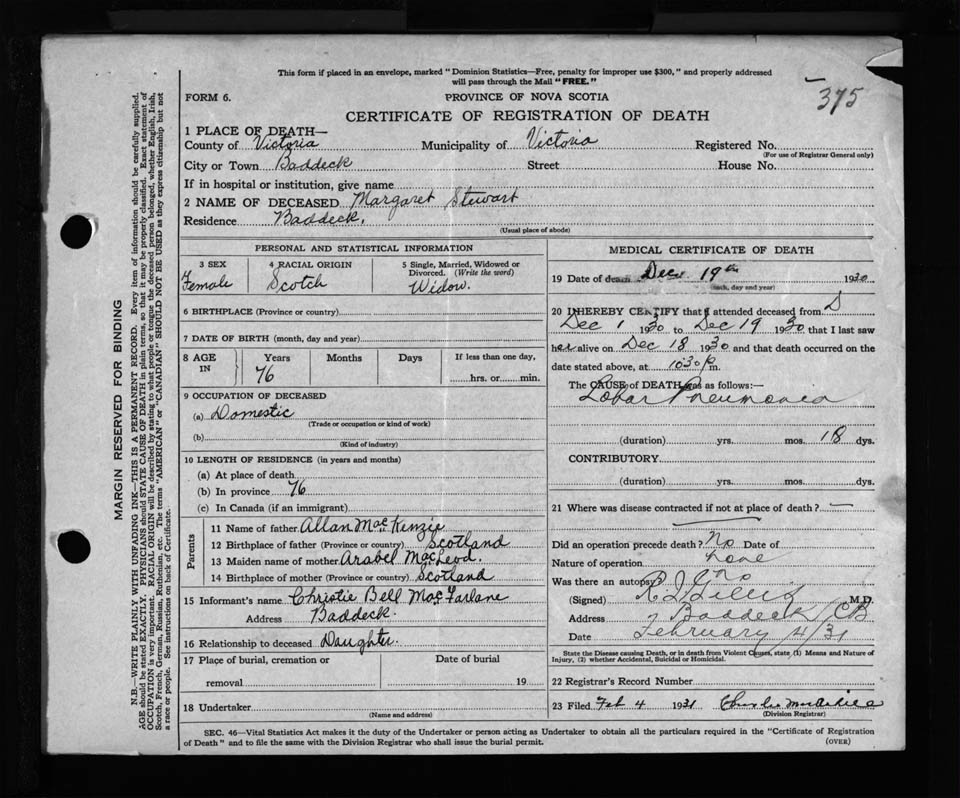 This form if placed in an envelope, marked "Dominion Statistics—Free, penalty for improper use $300," and properly addressed
will pass through the Mail "FREE."
FORM 6.
PROVINCE OF NOVA SCOTIA
375
CERTIFICATE OF REGISTRATION OF DEATH
1 PLACE OF DEATH—
County of Victoria Municipality of Victoria Registered No.
(For use of Registrar General only)
City or Town Baddeck Street House No.
If in hospital or institution, give name
2 NAME OF DECEASED Margaret Stewart
Residence Baddeck.
(Usual place of abode)
PERSONAL AND STATISTICAL INFORMATION
3 SEX
Female
4 RACIAL ORIGIN
Scotch
5 Single, Married, Widowed or
Divorced. (Write the word)
Widow.
6 BIRTHPLACE (Province or country)
7 DATE OF BIRTH (month, day and year)
8 AGE
IN
Years
76
Months
Days
If less than one day,
hrs. or min.
9 OCCUPATION OF DECEASED
(a) Domestic
(Trade or occupation or kind of work)
(b)
(Kind of industry)
10 LENGTH OF RESIDENCE (in years and months)
(a) At place of death
(b) In province 76
(c) In Canada (if an immigrant)
Parents
11 Name of father Allan MacKenzie
12 Birthplace of father (Province or country) Scotland
13 Maiden name of mother Arabel MacLeod.
14 Birthplace of mother (Province or country) Scotland
15 Informant's name Christie Bell MacFarlane
Address Baddeck.
16 Relationship to deceased Daughter.
17 Place of burial, cremation or Date of burial
removal 19
18 Undertaker
(Name and address)
MEDICAL CERTIFICATE OF DEATH
19 Date of death Dec 19th 1930
(month, day and year)
20 I HEREBY CERTIFY that I attended deceased from
Dec 1 1930 to Dec 19 1930 that I last saw
her alive on Dec 18 1930 and that death occurred on the
date stated above, at 10:30 p m.
The CAUSE of DEATH was as follows:—
Lobar Pneumonia
(duration) yrs. mos. 18 dys.
CONTRIBUTORY
(duration) yrs. mos. dys.
21 Where was disease contracted if not at place of death?
Did an operation precede death? No Date of
Nature of operation
Was there an autopsy? no
(Signed) M.D.
Address Baddeck CB
Date February 4/31
State the Disease causing Death, or in death from Violent Causes, state (1) Means and Nature of
Injury, (2) whether Accidental, Suicidal or Homicidal.
22 Registrar's Record Number
23 Filed Feb 4 1931 Charles
(Division Registrar)
SEC. 46—Vital Statistics Act makes it the duty of the Undertaker or person acting as Undertaker to obtain all the particulars required in the "Certificate of Registration
of Death" and to file the same with the Division Registrar who shall issue the burial permit.
(OVER)
MARGIN RESERVED FOR BINDING
N.B.—WRITE PLAINLY WITH UNFADING INK—THIS IS A PERMANENT RECORD. Every item of information should be carefully supplied.
AGE should be stated EXACTLY. PHYSICIANS should STATE CAUSE OF DEATH in plain terms, so that it may be properly classified. Exact statement of
OCCUPATION is very important. RACIAL ORIGIN will be described by stating to what people or tongue the deceased person belonged, whether English, Irish,
Scotch, French, German, Russian, Ruthenian, etc. The terms "AMERICAN" or "CANADIAN" SHOULD NOT BE USED as they express citizenship but not
a race or people. See instructions on back of Certificate.